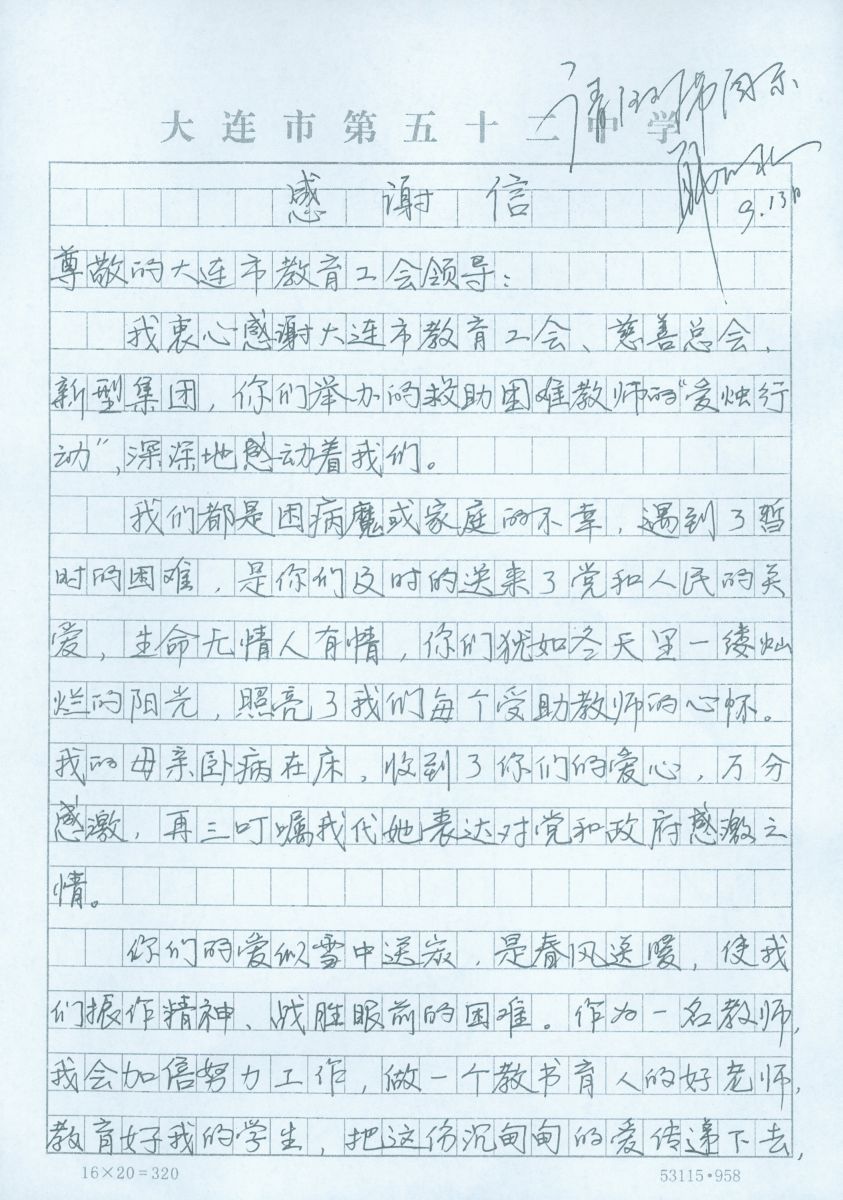 大连市第五十二中学
请
9.13日
感谢信
尊敬的大连市教育工会领导：
我衷心感谢大连市教育工会、慈善总会、
新型集团，你们举办的救助困难教师的“爱烛行
动”，深深地感动着我们。
我们都是因病魔或家庭的不幸，遇到了暂
时的困难，是你们及时的送来了党和人民的关
爱，生命无情人有情，你们犹如冬天里一缕灿
烂的阳光，照亮了我们每个受助教师的心怀。
我的母亲卧病在床，收到了你们的爱心，万分
感激，再三叮嘱我代她表达对党和政府感激之
情。
你们的爱似雪中送炭，是春风送暖，使我
们振作精神、战胜眼前的困难。作为一名教师，
我会加倍努力工作，做一个教书育人的好老师，
教育好我的学生，把这份沉甸甸的爱传递下去，
16×20=320
53115·958